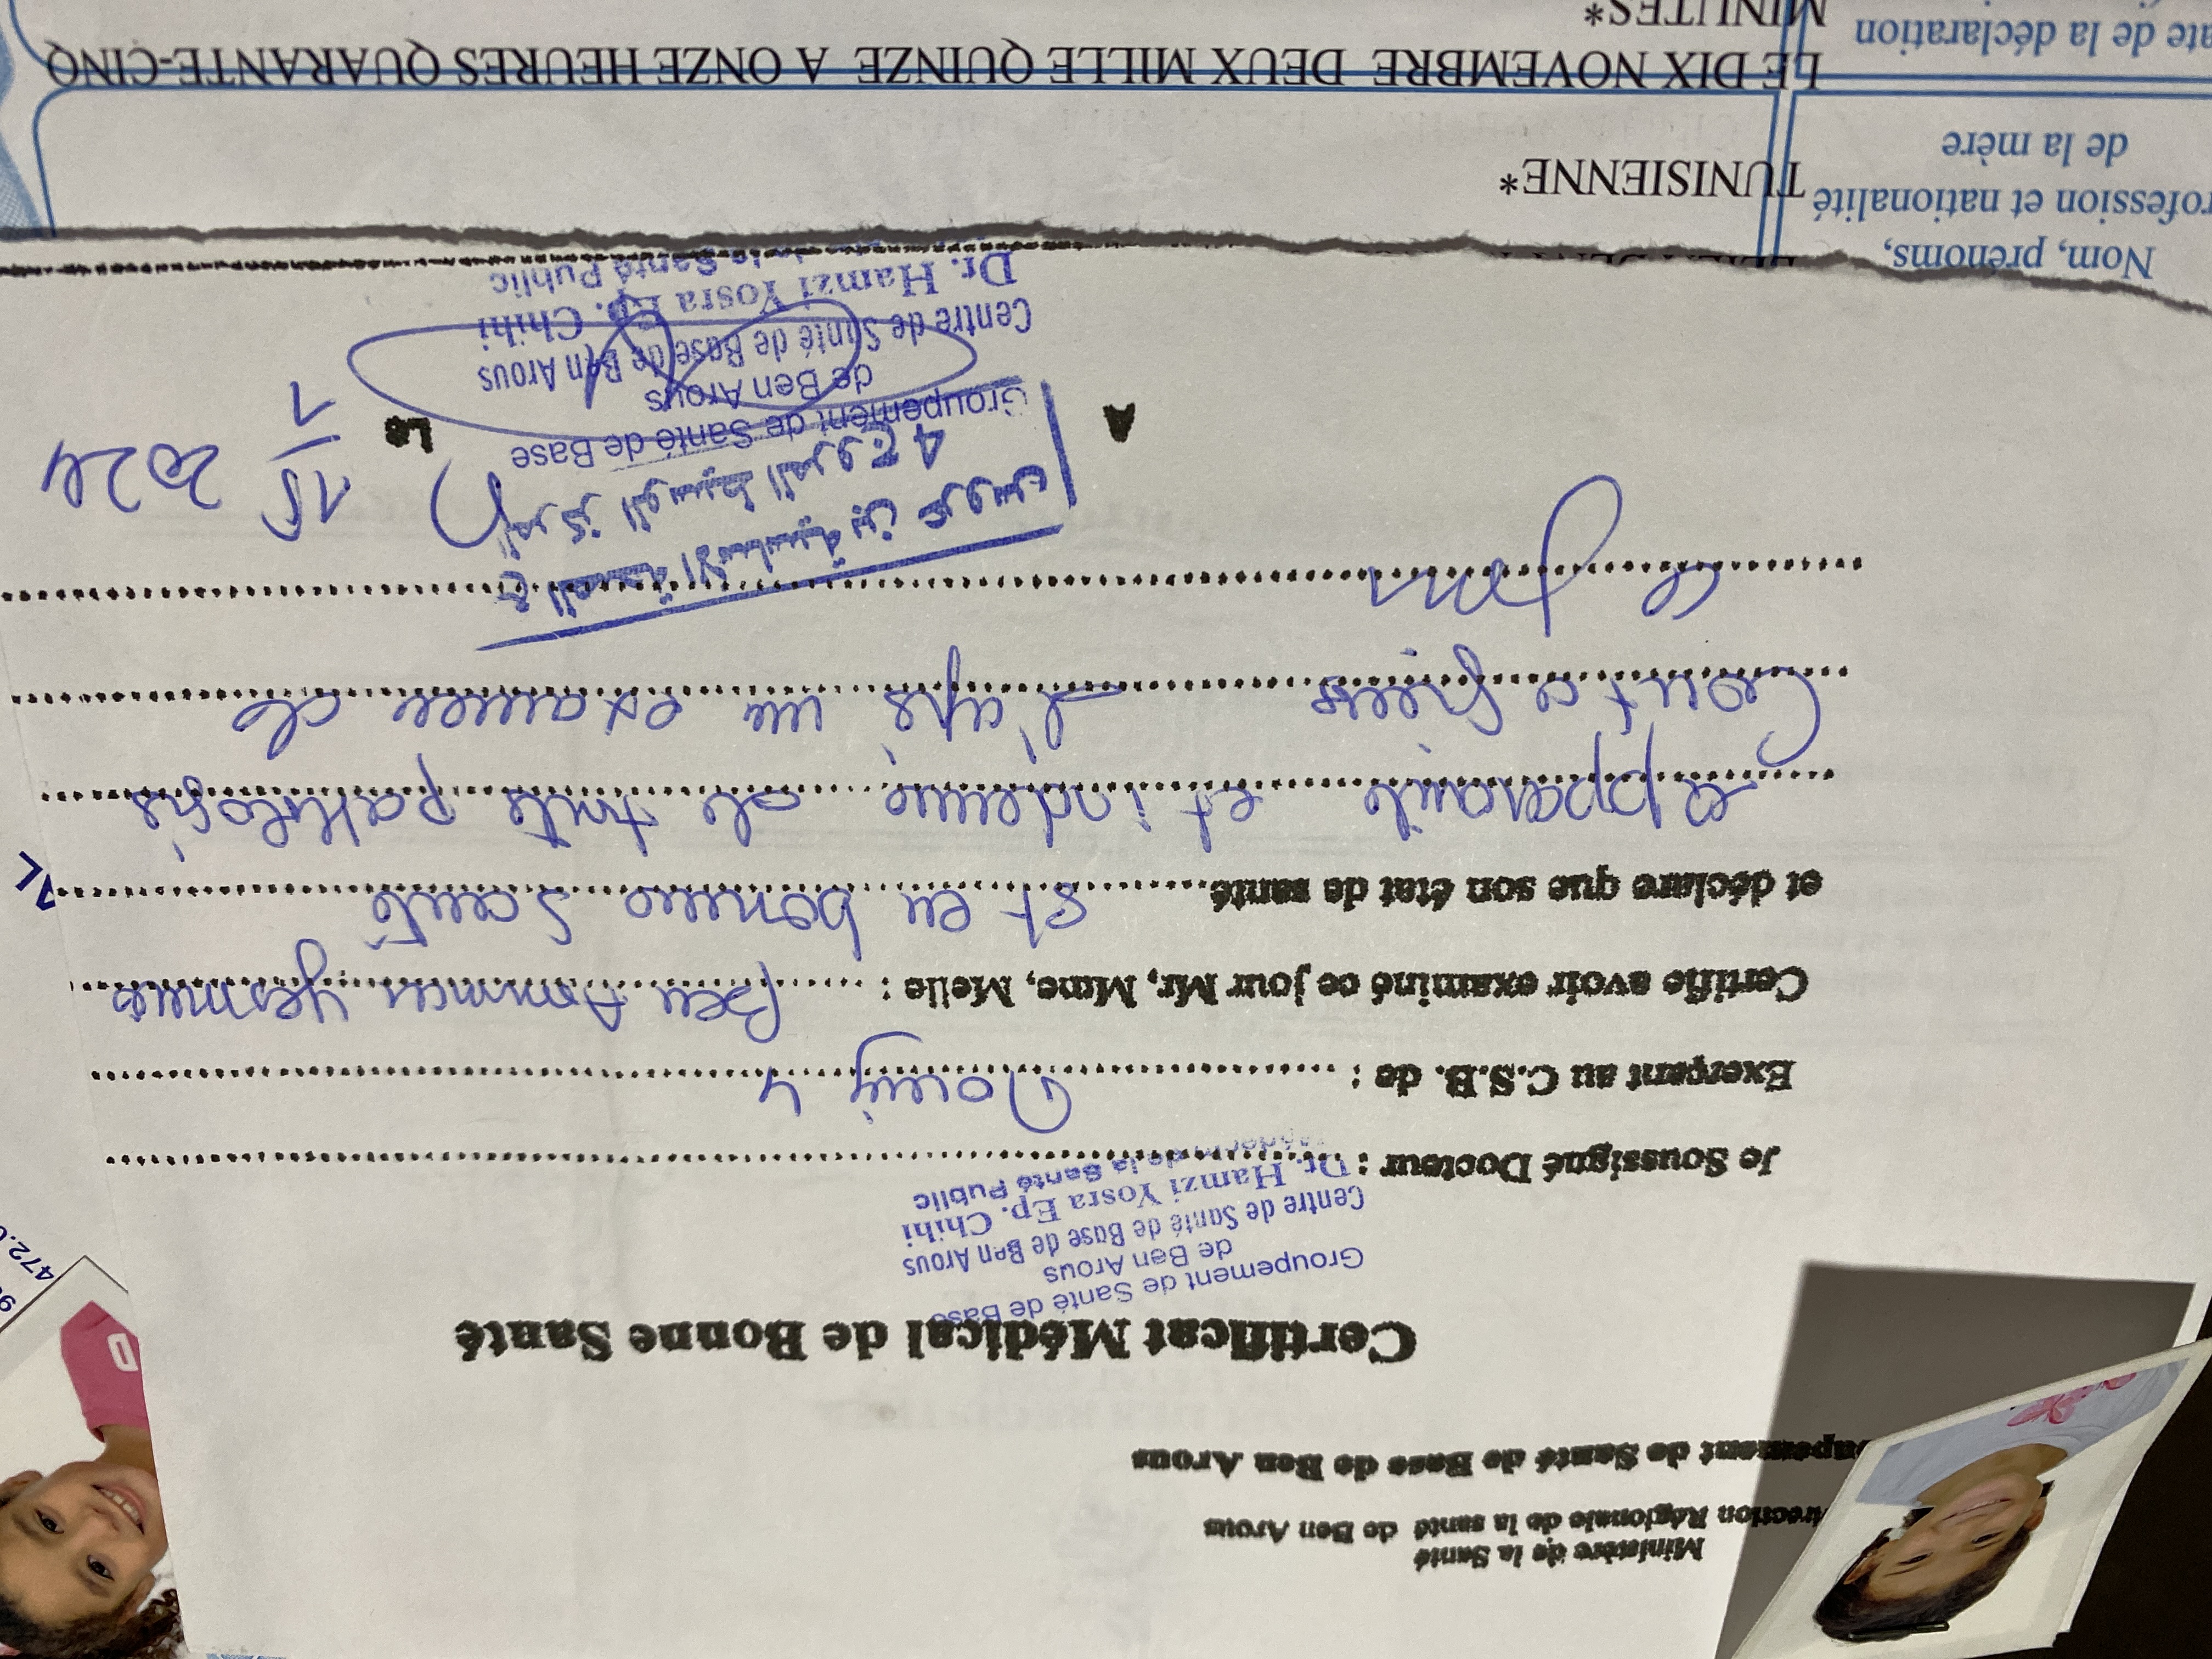 Ministère de la Santé
irection Régionale de la santé de Ben Arous
upement de Santé de Base de Ben Arous
Certificat Médical de Bonne Santé
Groupement de Santé de Base
de Ben Arous
Centre de Santé de Base de Ben Arous
Dr. Hamzi Yosra Ep. Chihi
de la Santé Public
Je Soussigné Docteur :
Exerçant au C.S.B. de :
Certifie avoir examiné ce jour Mr, Mme, Melle : Ben Ammar Yasmine
et déclare que son état de santé est en bonne Santé
apparente et indemne de toute pathologie
Contagieuse d'après un examen de
ce jour
A
Le 15/1 2024
4
Groupement de Santé de Base
de Ben Arous
Centre de Santé de Base de Ben Arous
Dr. Hamzi Yosra Ep. Chihi
de la Santé Public
Nom, prénoms,
rofession et nationalité
de la mère
TUNISIENNE*
ate de la déclaration
LE DIX NOVEMBRE DEUX MILLE QUINZE A ONZE HEURES QUARANTE-CINQ
MINUTES*
472.
D